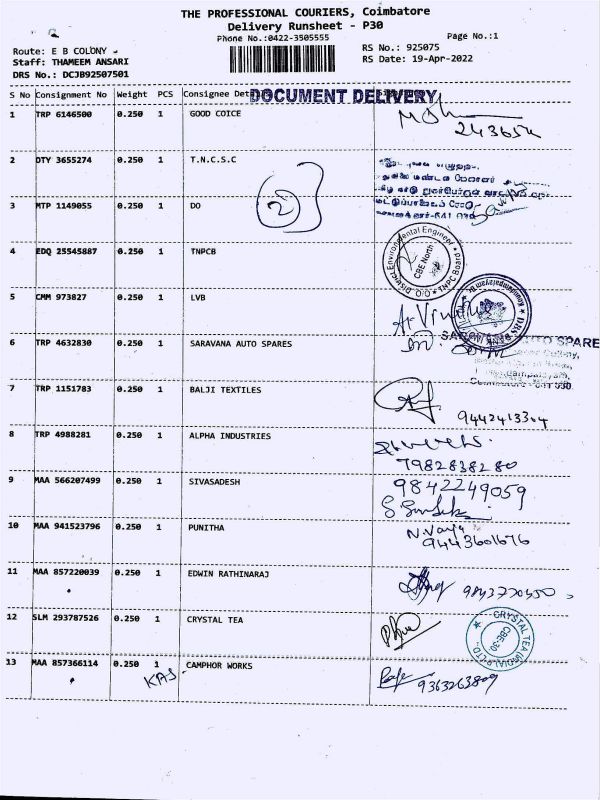 THE PROFESSIONAL COURIERS, Coimbatore
Delivery Runsheet - P30
Phone No.:0422-3505555
Page No.:1
Route: E B COLONY
RS No.: 925075
Staff: THAMEEM ANSARI
RS Date: 19-Apr-2022
DRS No.: DCJB92507501
S No Consignment No Weight PCS Consignee
DOCUMENT DELIVERY
1 TRP 6146500 0.250 1 GOOD COICE
2 DTY 3655274 0.250 1 T.N.C.S.C
3 MTP 1149055 0.250 1 DO
2
4 EDQ 25545887 0.250 1 TNPCB
District Environmental Engineer TNPC Board
CBE North
5 CMM 973827 0.250 1 LVB
6 TRP 4632830 0.250 1 SARAVANA AUTO SPARES
AUTO SPARE
7 TRP 1151783 0.250 1 BALJI TEXTILES
9442413304
8 TRP 4988281 0.250 1 ALPHA INDUSTRIES
7982838280
9 MAA 566207499 0.250 1 SIVASADESH
9842249059
10 MAA 941523796 0.250 1 PUNITHA
9443601676
11 MAA 857220039 0.250 1 EDWIN RATHINARAJ
12 SLM 293787526 0.250 1 CRYSTAL TEA
CRYSTAL TEA (INDIA) P LTD.
CBE-30
13 MAA 857366114 0.250 1 CAMPHOR WORKS
KAS
9363263809